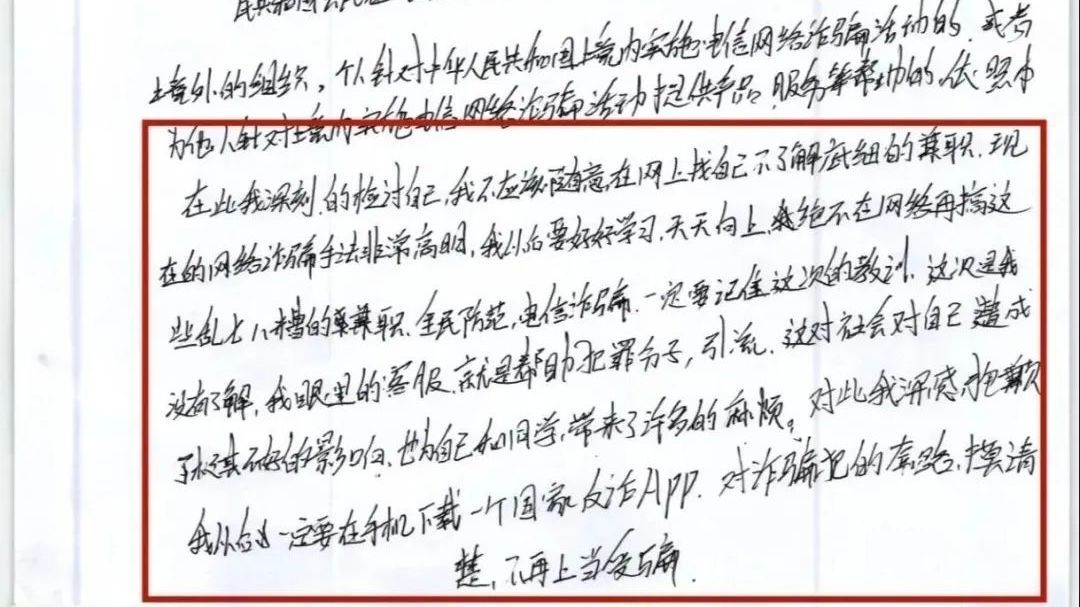 民共和国公民在
土境外的组织、个人针对中华人民共和国土境内实施电信网络诈骗活动的，或者
为他人针对土境内实施电信网络诈骗活动提供产品、服务等帮助的，依照本
在此我深刻的检讨自己，我不应该随意在网上找自己不了解底细的兼职，现
在的网络诈骗手法非常高明，我以后要好好学习，天天向上，我绝不在网络再搞这
些乱七八糟的兼职、全民防范，电信诈骗，一定要记住这次的教训，这次是我
没有了解，我眼里的客服，就是帮助犯罪分子，引流，这对社会对自己造成
了极其不好的影响，也为自己和同学，带来了许多的麻烦。对此我深感抱歉
我以后一定要在手机下载一个国家反诈App，对诈骗犯的套路，摸清
楚，不再上当受骗.